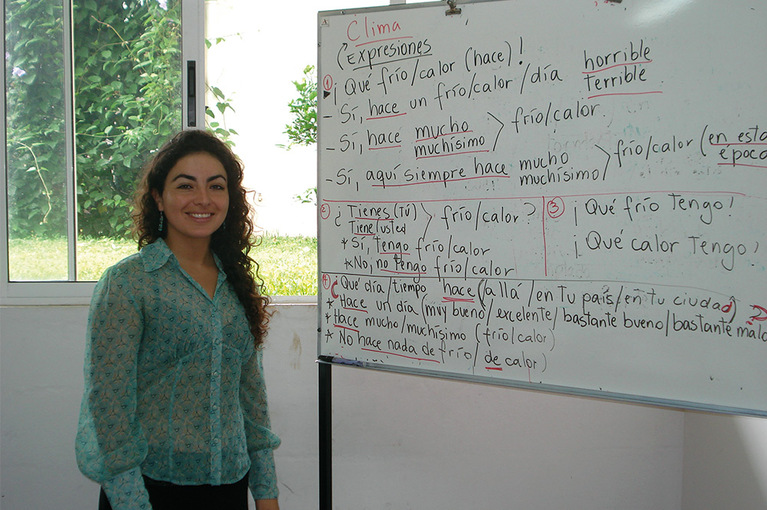 Clima
Expresiones
① ¡Qué frío/calor (hace)!
- Sí, hace un frío/calor/día horrible terrible
- Sí, hace mucho muchísimo > frío/calor
- Sí, aquí siempre hace mucho muchísimo > frío/calor (en esta época
② ¿Tienes (Tú) Tiene usted > frío/calor?
* Sí, Tengo frío/calor
* No, no Tengo frío/calor
③ ¡Qué frío Tengo!
¡Qué calor Tengo!
④ ¿Qué día/tiempo hace (allá/en Tu país/en tu ciudad)
* Hace un día (muy bueno/excelente/bastante bueno/bastante malo
* Hace mucho/muchísimo (frío/calor)
* No hace nada de frío/de calor)